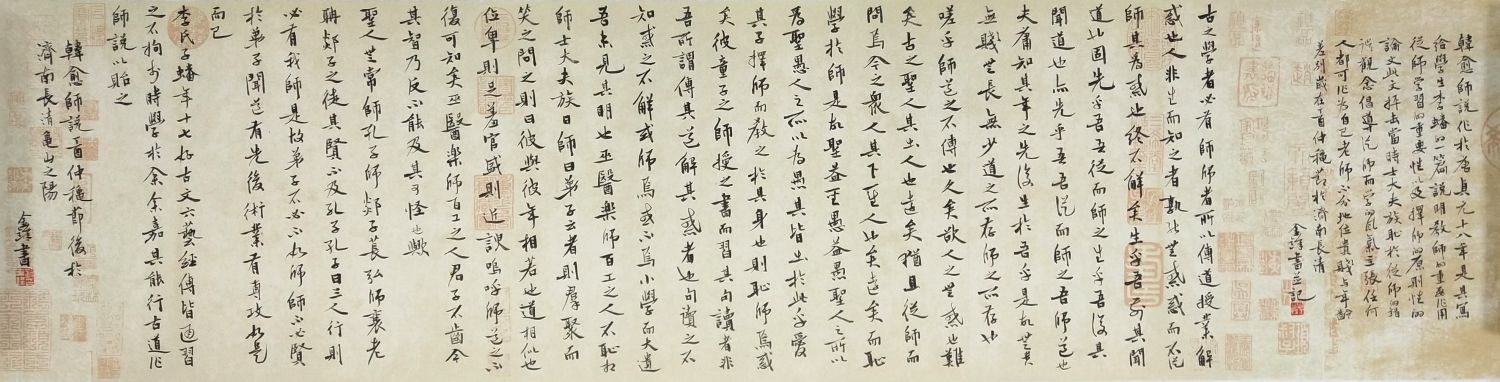 韓愈師說作於唐貞元十八年是其寫
給學生李蟠的一篇說明教師的重要作用
從師學習的重要性以及擇師的原則性的
論文此文抨擊當時士大夫族耻於從師的錯
誤觀念倡導從師而學的風氣主張任何
人都可作為自己老師不分地位貴賤与年齡
差別歲在酉仲穐節於濟南長清
書並記
古之學者必有師師者所以傳道授業解
惑也人非生而知之者孰能無惑惑而不從
師其為惑也終不解矣生乎吾前其聞
道也固先乎吾吾從而師之生乎吾後其
聞道也亦先乎吾吾從而師之吾師道也
夫庸知其年之先後生於吾乎是故無貴
無賤無長無少道之所存師之所存也
嗟乎師道之不傳也久矣欲人之無惑也難
矣古之聖人其出人也遠矣猶且從師而
問焉今之衆人其下聖人也亦遠矣而恥
學於師是故聖益聖愚益愚聖人之所以
為聖愚人之所以為愚其皆出於此乎愛
其子擇師而教之於其身也則恥師焉惑
矣彼童子之師授之書而習其句讀者非
吾所謂傳其道解其惑者也句讀之不
知惑之不解或師焉或不焉小學而大遺
吾未見其明也巫醫樂師百工之人不恥相
師士大夫族曰師曰弟子云者則羣聚而
笑之問之則曰彼與彼年相若也道相似也
位卑則足羞官盛則近諛嗚呼師道之不
復可知矣巫醫樂師百工之人君子不齒今
其智乃反不能及其可怪也歟
聖人無常師孔子師郯子萇弘師襄老
聃郯子之徒其賢不及孔子孔子曰三人行則
必有我師是故弟子不必不如師師不必賢
於弟子聞道有先後術業有專攻如是
而已
李氏子蟠年十七好古文六藝經傳皆通習
之不拘於時學於余余嘉其能行古道作
師說以貽之
韓愈師說酉仲穐節後於
濟南長清龜山之陽
書